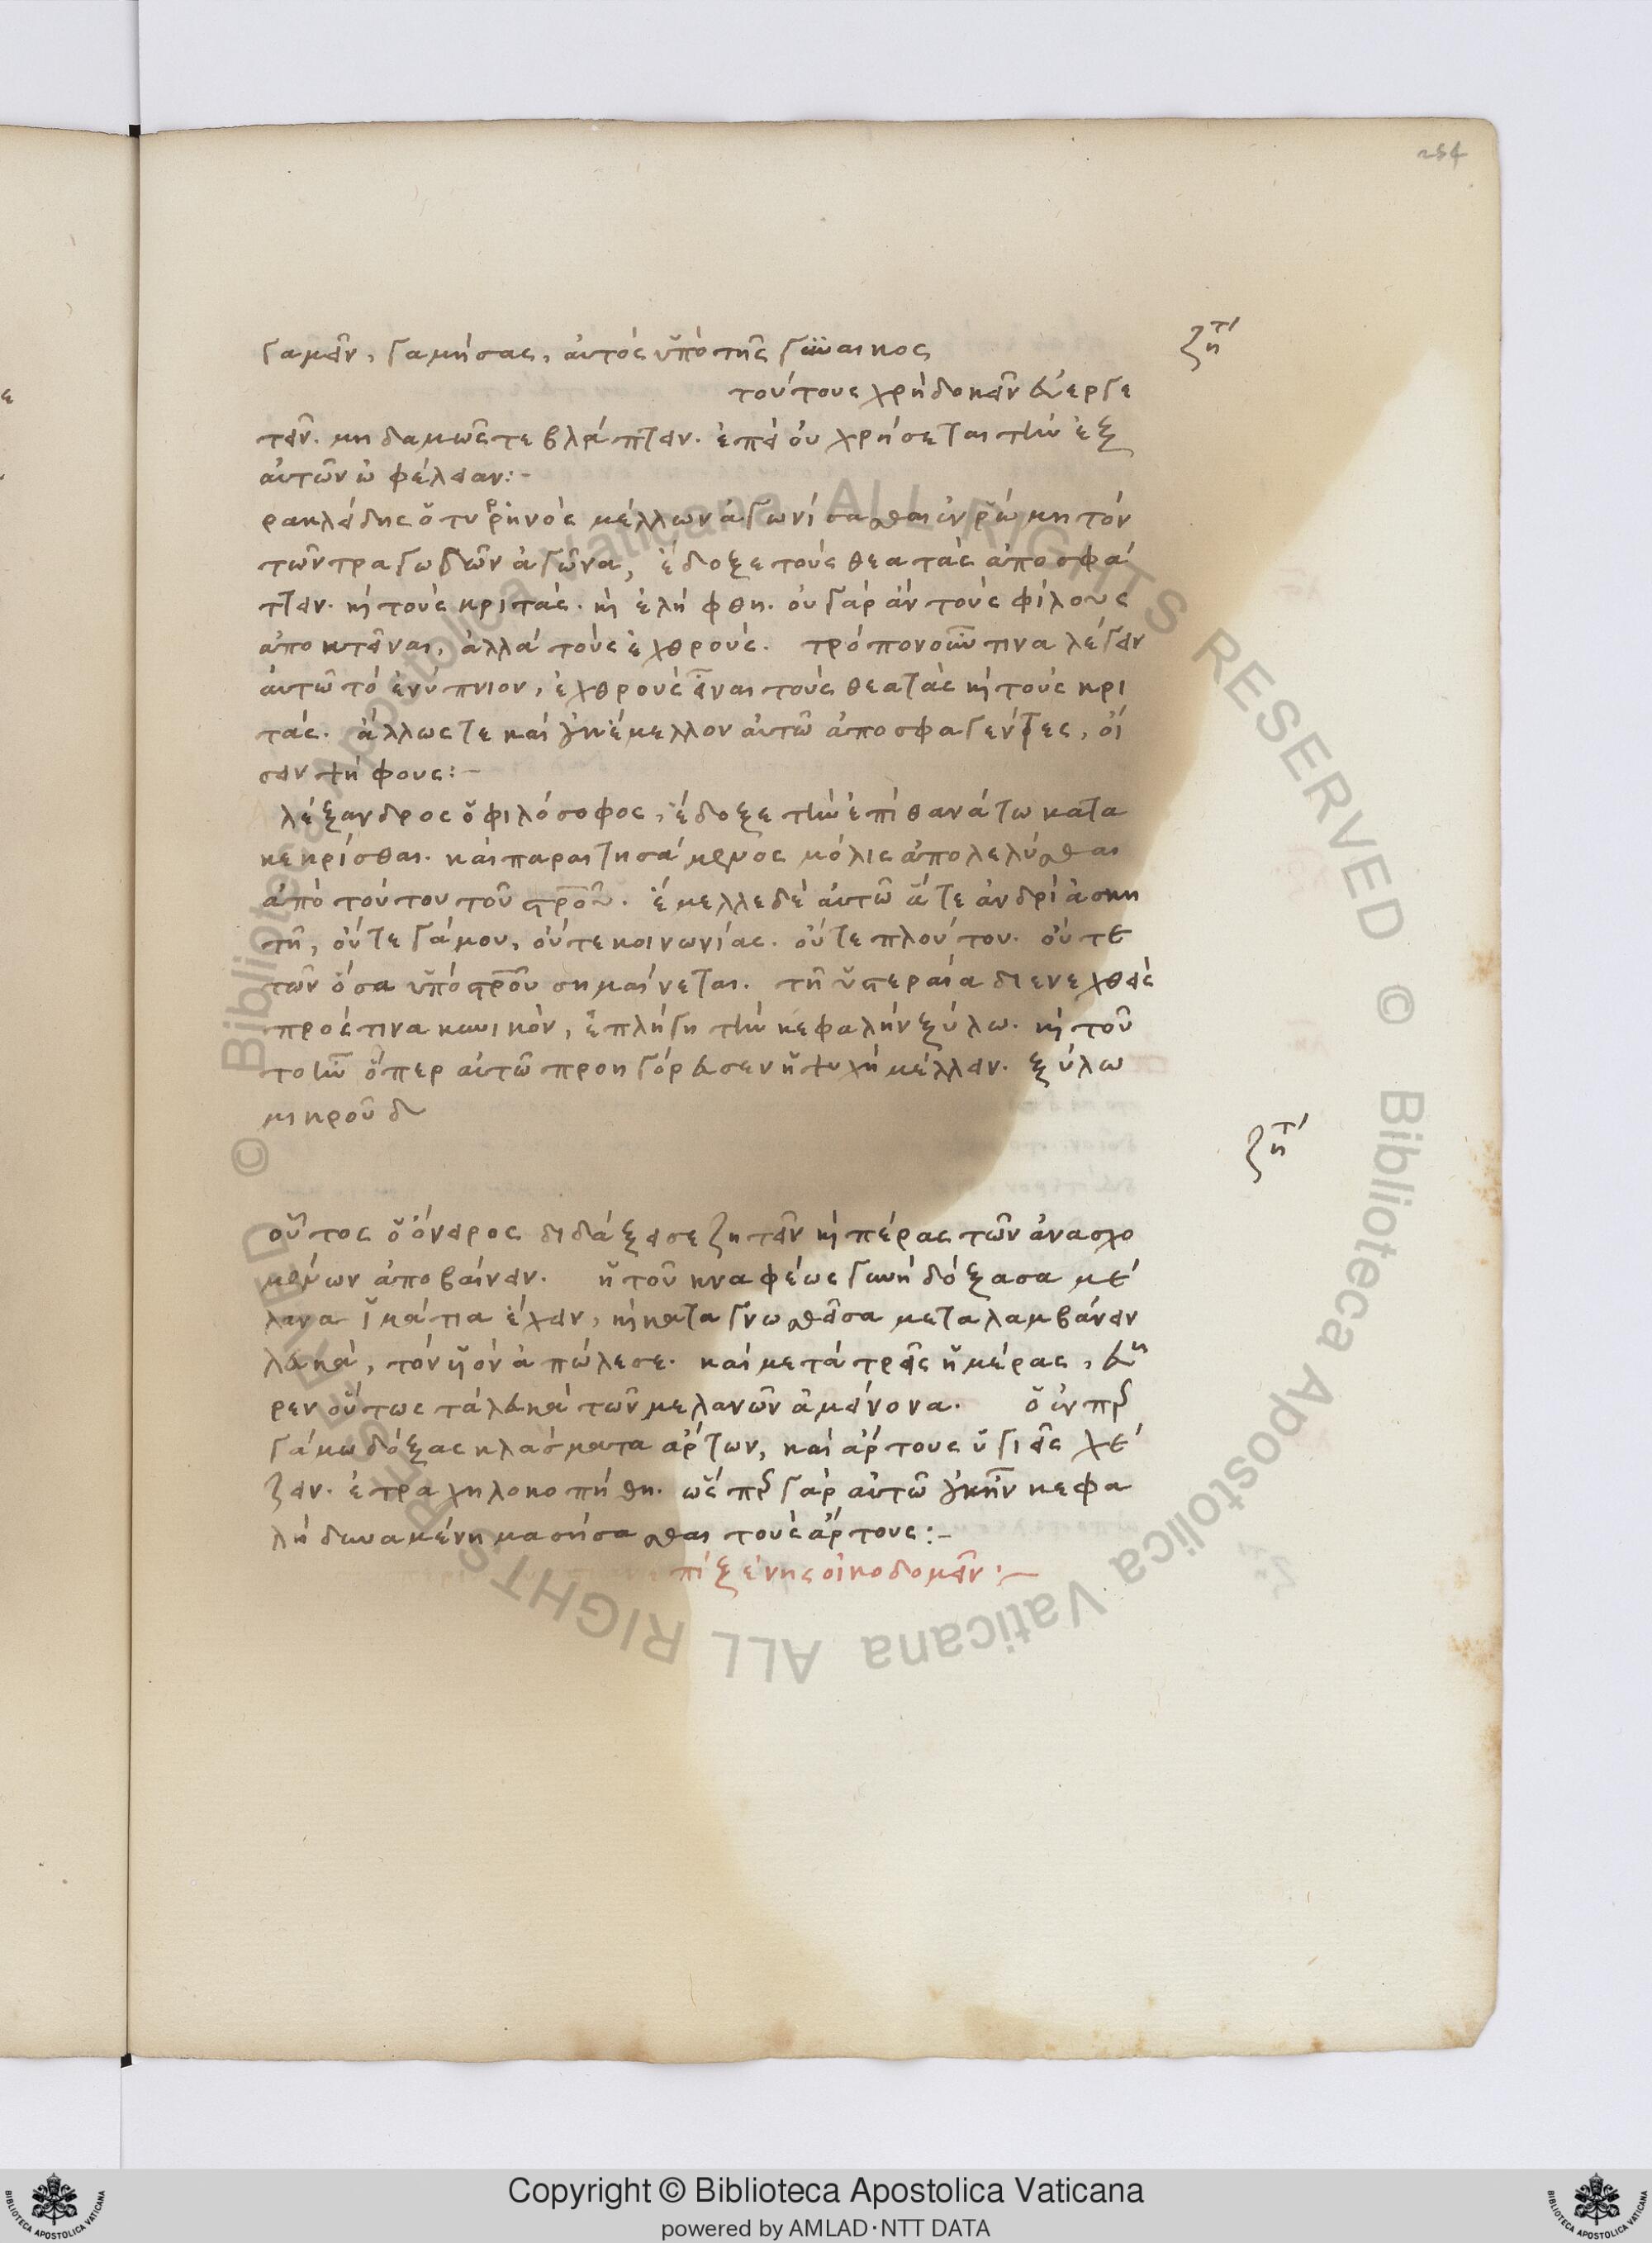 254
γαμεῖν, γαμήσας, αὐτὸς ὑπὸ τῆς γυναικος
ζητ
τούτους χρὴ δοκεῖν εὐεργε
τεῖν. μηδαμῶς τε βλάπτειν. ἐπεὶ οὐ χρήσεται τὴν ἐξ
αὐτῶν ὠφέλειαν:-
ρακλείδης ὁ τυρρηνὸς μέλλων ἀγωνίσασθαι ἐν ῥώμη τὸν
τῶν τραγωδῶν ἀγῶνα, ἔδοξε τοὺς θεατὰς ἀποσφά
ττειν. καὶ τοὺς κριτάς. καὶ ἐλήφθη. οὐ γὰρ ἂν τοὺς φίλους
ἀποκτεῖναι, ἀλλὰ τοὺς ἐχθρούς. τρόπον οὖν τινα λέγειν
αὐτῶ τὸ ἐνύπνιον, ἐχθροὺς εἶναι τοὺς θεατὰς καὶ τοὺς κρι
τάς. ἄλλως τε καὶ ἔμελλον αὐτῶ ἀποσφαγέντες, οἴ
σειν ψήφους:-
λέξανδρος ὁ φιλόσοφος, ἔδοξε τὴν ἐπὶ θανάτω κατα
κεκρίσθαι. καὶ παραιτησάμενος μόλις ἀπολελύσθαι
ἀπὸ τούτου τοῦ σταυροῦ. ἔμελλε δὲ αὐτῶ ἅτε ἀνδρὶ ἀσκη
τῆ, οὔτε γάμου, οὔτε κοινωνίας. οὔτε πλούτου. οὔτε
τῶν ὅσα ὑπὸ σταυροῦ σημαίνεται. τῆ ὑστεραία διενεχθεὶς
πρός τινα κυνικὸν, ἐπλήγη τὴν κεφαλὴν ξύλω. καὶ τοῦ
το ἦν ὅπερ αὐτῶ προηγόρευσεν ἡ ψυχὴ μέλλειν. ξύλω
μικροῦ δ
ζητ
οὗτος ὁ ὄνειρος διδάξει σε ζητεῖν καὶ πέρας τῶν ἀνασχο
μένων ἀποβαίνειν. ἡ τοῦ κναφέως γυνὴ δόξασα μέ
λανα ἱμάτια ἔχειν, καὶ καταγνωσθεῖσα μεταλαμβάνειν
λευκά, τὸν υἱὸν ἀπώλεσε. καὶ μετὰ τρεῖς ἡμέρας, εὗ
ρεν οὕτως τὰ λευκὰ τῶν μελανῶν ἀμείνονα. ὁ ἐν περ
γάμω δόξας κλάσματα ἄρτων, καὶ ἄρτους ὑγιεῖς χέ
ζειν. ἐτραχηλοκοπήθη. ὡς γὰρ αὐτῶ κεφα
λὴ δυναμένη μασήσασθαι τοὺς ἄρτους:-
πὶ ξένης οἰκοδομεῖν:-
© Biblioteca Apostolica Vaticana ALL RIGHTS RESERVED © Biblioteca Apostolica Vaticana ALL RIGHTS RESERVED
Copyright © Biblioteca Apostolica Vaticana
powered by AMLAD·NTT DATA
BIBLIOTECA APOSTOLICA VATICANA
BIBLIOTECA APOSTOLICA VATICANA